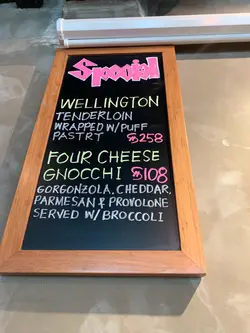 Special
WELLINGTON
TENDERLOIN
WRAPPED W/PUFF
PASTRY $258
FOUR CHEESE
GNOCCHI $108
GORGONZOLA, CHEDDAR,
PARMESAN & PROVOLONE
SERVED W/ BROCCOLI